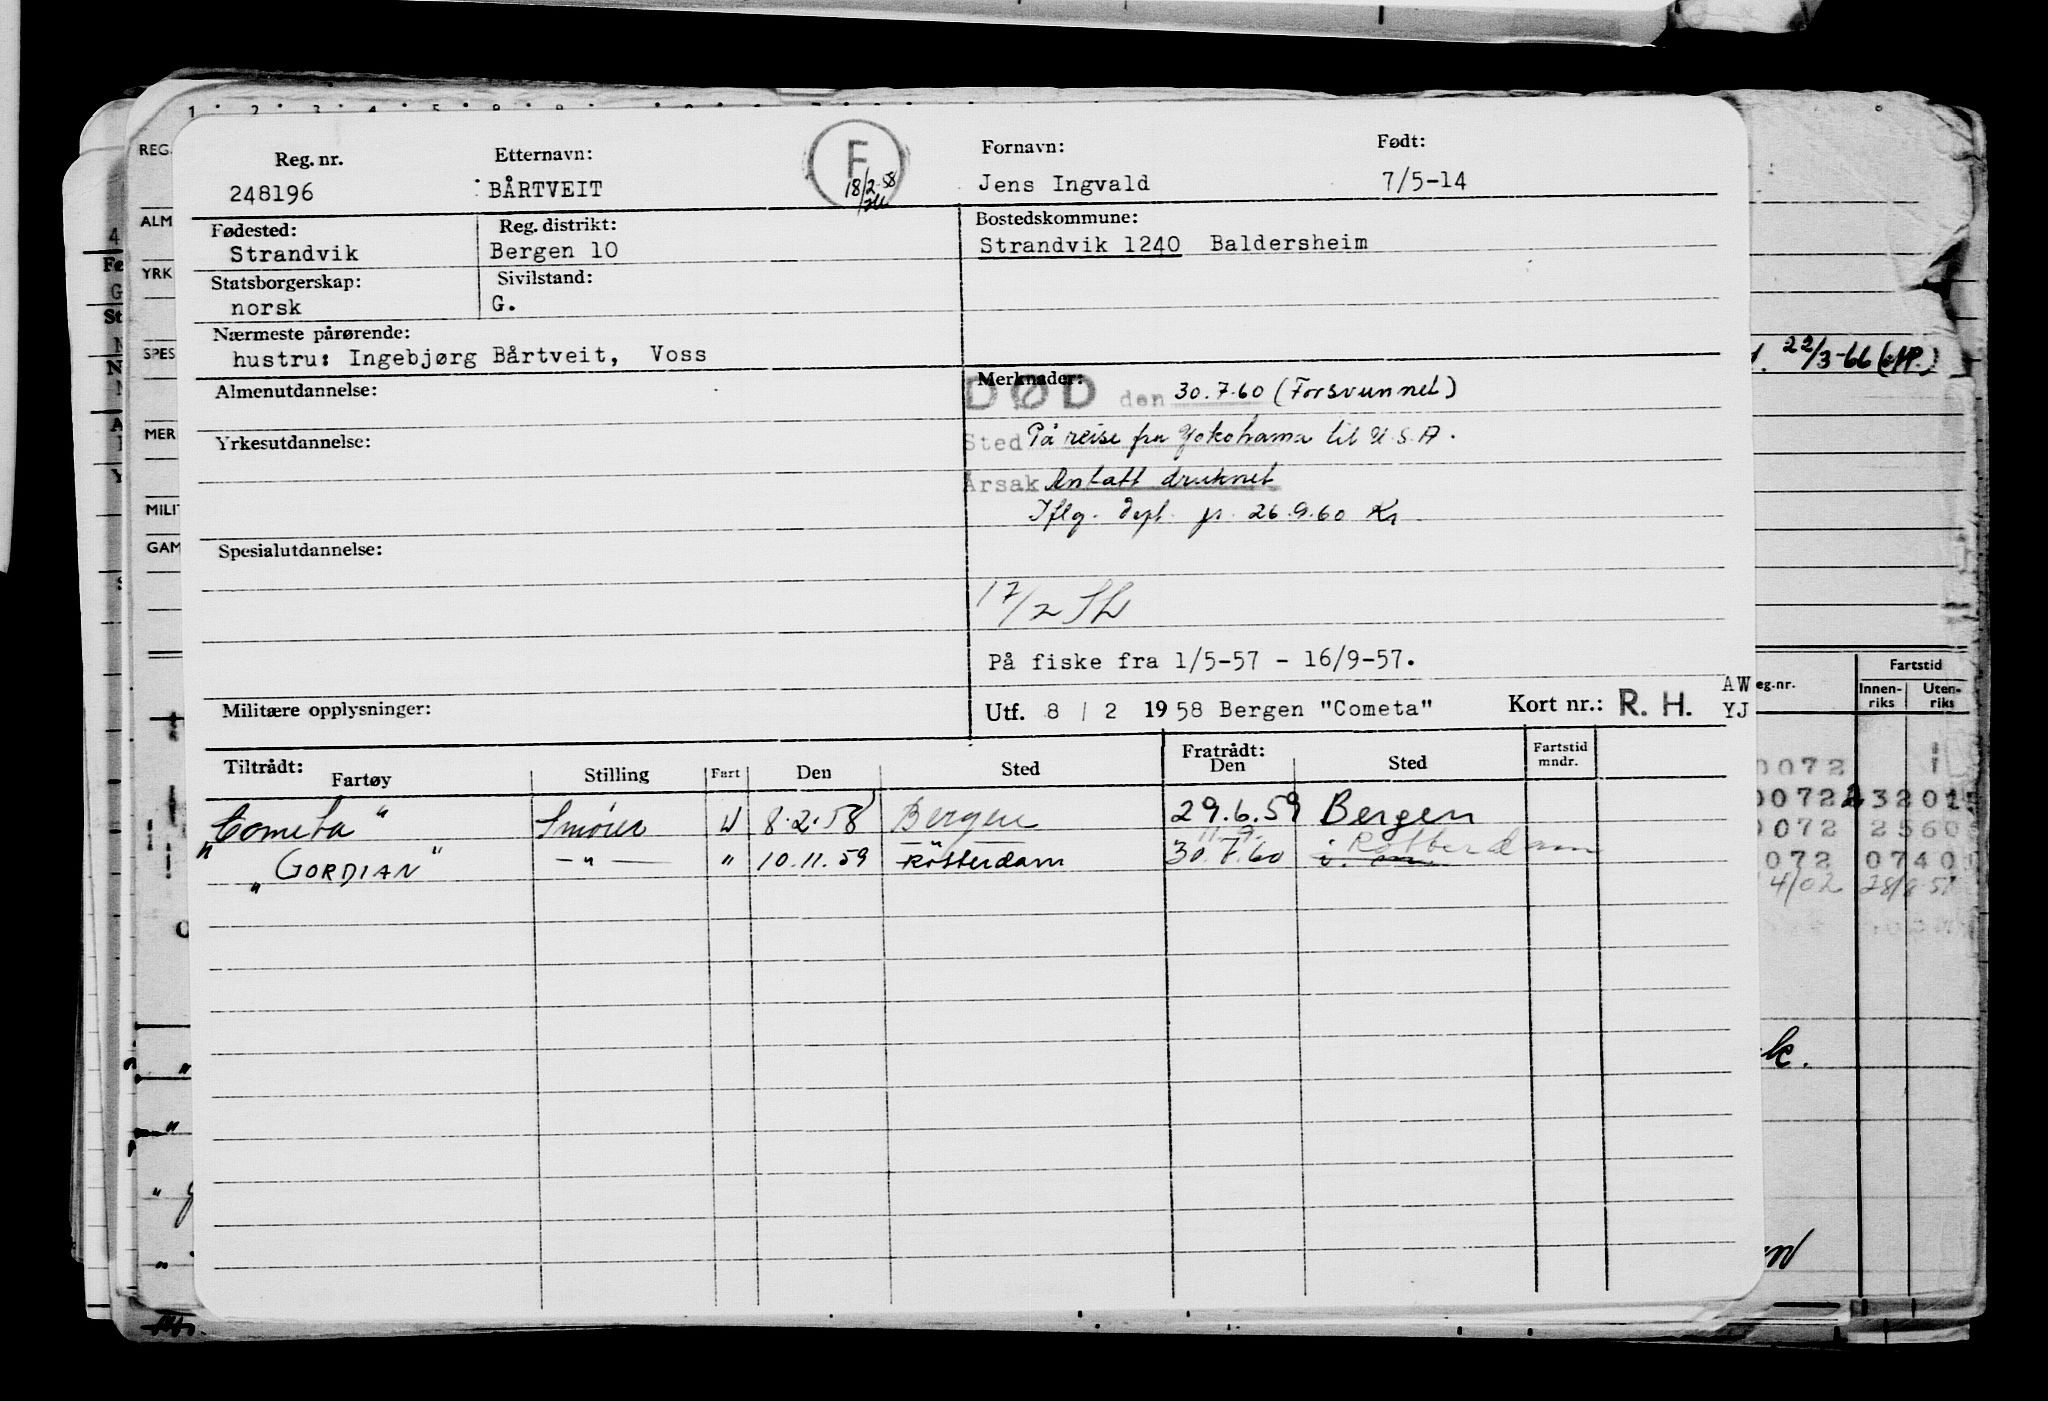 Reg. nr. Etternavn: F Fornavn: Født:
248196 BÅRTVEIT 18/2-58 Jens Ingvald 7/5-14
Fødested: Reg. distrikt: Bostedskommune:
Strandvik Bergen 10 Strandvik 1240 Baldersheim
Statsborgerskap: Sivilstand:
norsk G.
Nærmeste pårørende:
hustru: Ingebjørg Bårtveit, Voss
Almenutdannelse: Merknader:
DØD den 30.7.60 (Forsvunnet)
Yrkesutdannelse: Sted På reise fra Yokohama til U.S.A.
Årsak Antatt druknet
Iflg. dept. 26.9.60 Kr
Spesialutdannelse:
17/2
På fiske fra 1/5-57 - 16/9-57.
Militære opplysninger: Utf. 8 / 2 1958 Bergen "Cometa" Kort nr.: R. H.
Tiltrådt: Fratrådt:
Fartøy Stilling Fart Den Sted Den Sted Fartstid mndr.
"Cometa" Smører U 8.2.58 Bergen 29.6.59 Bergen
11 9. Rotterdam
"GORDIAN" — " — " 10.11.59 Rotterdam 30.7.60
REG.
ALM
YRK
SPES
MER
MILIT
GAM
22/3-66
AW
YJ
eg.nr. Fartstid
Innen-riks Uten-riks
0072
0072 3201
0072 2560
072 0740
4/02 28/8 51